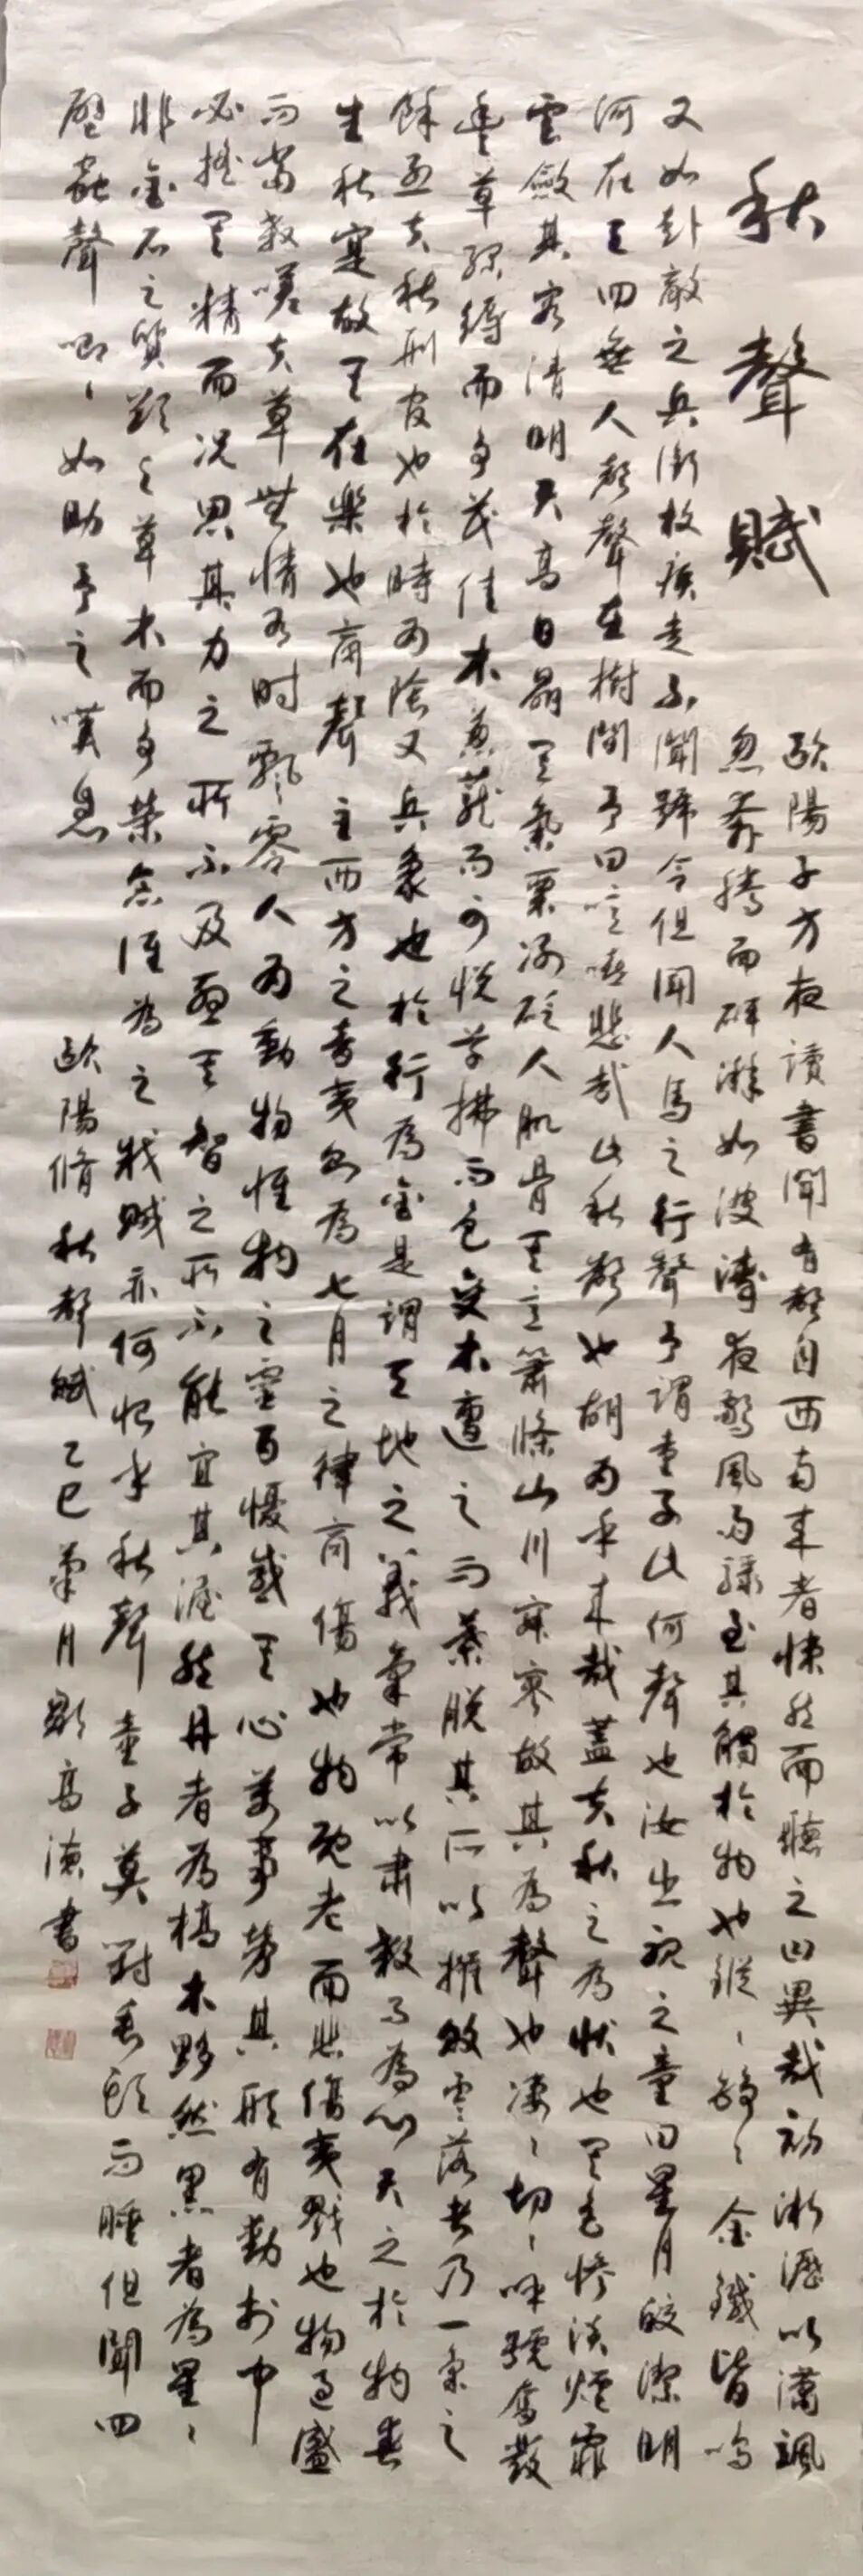 秋聲賦
歐陽子方夜讀書聞有聲自西南來者悚然而聽之曰異哉初淅瀝以瀟颯
忽奔騰而砰湃如波濤夜驚風雨驟至其觸於物也鏦〻錚〻金鐵皆鳴
又如赴敵之兵銜枚疾走不聞號令但聞人馬之行聲予謂童子此何聲也汝出視之童曰星月皎潔明
河在天四無人聲聲在樹間予曰噫嘻悲哉此秋聲也胡為乎來哉蓋夫秋之為狀也其色慘淡煙霏
雲斂其容清明天高日晶其氣栗冽砭人肌骨其意蕭條山川寂寥故其為聲也淒〻切〻呼號奮發
豐草綠縟而爭茂佳木蔥蘢而可悅草拂而色變木遭之而葉脫其所以摧敗零落者乃一氣之
餘烈夫秋刑官也於時為陰又兵象也於行為金是謂天地之義氣常以肅殺而為心天之於物春
生秋實故其在樂也商聲主西方之音夷則為七月之律商傷也物既老而悲傷夷戮也物過盛
而當殺嗟夫草無情有時飄零人為動物惟物之靈百憂感其心萬事勞其形有動於中
必搖其精而況思其力之所不及憂其智之所不能宜其渥然丹者為槁木黟然黑者為星〻
非金石之質欲與草木而爭榮念誰為之戕賊亦何恨乎秋聲童子莫對垂頭而睡但聞四
壁蟲聲唧〻如助予之嘆息
歐陽脩秋聲賦乙巳菊月彭高漶書